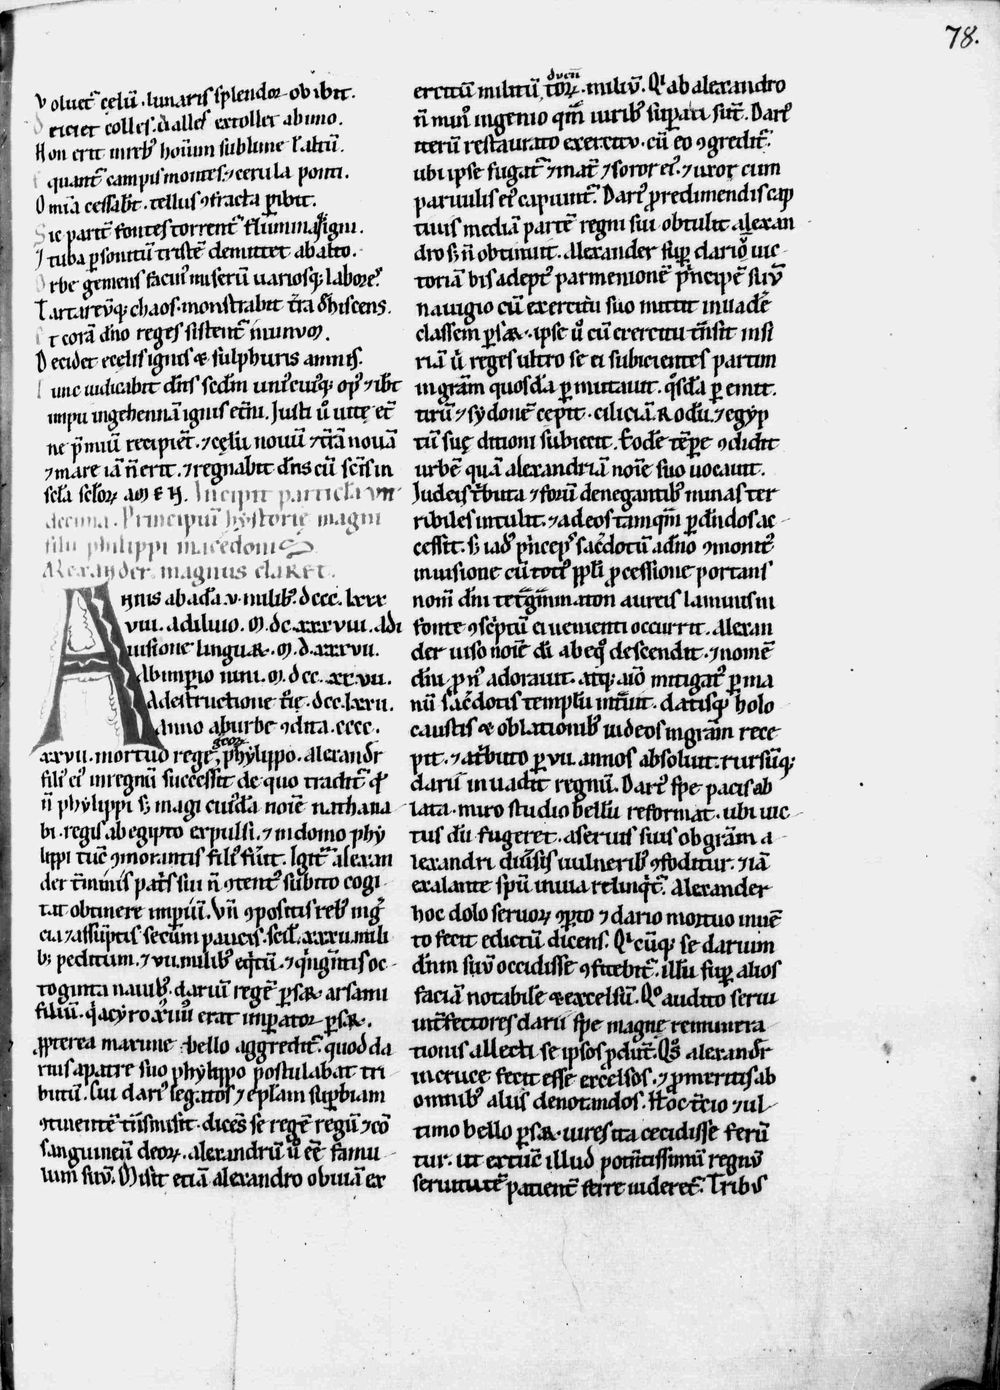 78.
Voluet᷑ celū. lunaris splendor obibit.
Deiciet colles. ualles extollet ab imo.
Non erit in reb᷒ hoīnum sublime ł altū.
equant᷑ campis montes. ⁊ cerula ponti.
Omīa cessabt̄. tellus ꝯfracta ꝑibit.
Sic parit̄ fontes torrent᷑ flumina ꝙ igni.
tuba ꝑ sonitū tristē demittet ab alto.
Orbe gemens facin᷒ miserū uariosꝙ labores.
Tartareūꝙ chaos monstrabit t̄ra dehiscens.
Et corā dn̄o reges sistent᷑ in unum.
Decidet e celis ignis & sulphuris amnis.
Tunc iudicabit dn̄s scd̄m uni᷒cuiꝙ op᷒ ⁊ ibt̄
impii in gehennā ignis et̄ni. Iusti ū uite et̄
ne p̄miū recipiēt. ⁊ celū nouū ⁊ t̄rā nouā
⁊ mare iā n̄ erit. ⁊ regnabit dn̄s cū sc̄is in
scl̄a scl̄oꝝ am̄en. Incipit particla un
decima. Principiū hystorie magni
filii philippi macedonis
Alexander magnus claret.
Annis ab adā v. milib᷒. dccc. lxxx
viii. A diluio. m. dc. xxxviii. A di
uisione linguaꝝ. m. d. xxxvii.
Ab imp̄io nini. m. dcc. xxvii.
A destructione t̄ie. dcc. lxxii.
anno ab urbe ꝯdita. cccc.
xxvii. mortuo rege grecoꝝ phylippo. alexandr̄
fili᷒ ei᷒ in regnū successit de quo tradit᷑ qd̄
n̄ phylippi sꝫ magi cui᷒dā noīe nathana
bi. regis ab egipto expulsi. ⁊ in domo phy
lippi tūc ꝯmorantis fili᷒ fuit. Igit᷑ alexan
der t̄minis pat̄s sui n̄ ꝯtent᷒ subito cogi
tat obtinere imp̄iū. Vn̄ ꝯpositis reb᷒ in g̃
cia ⁊ assūptis secum paucis. scil. xxxii. mili
bꝫ peditum. ⁊ vii. milib᷒ eq̄tū. ⁊ q̄ngintis oc
toginta nauib᷒. dariū regē ꝑsaꝝ arsami
filiū. q̄ a cyro xiiii᷒ erat imꝑator ꝑsaꝝ.
ꝓpterea maxime bello aggredit᷑. quod da
rius a patre suo phylippo postulabat tri
butū. Cui dari᷒ legatos ⁊ ep̄lam suꝑbiam
ꝯtinentē t̄nsmisit. dicēs se regē regū ⁊ cō
sanguineū deoꝝ. alexandrū ū eē famu
lum suū. Misit etiā alexandro obuiā ex
ercitū militū ducentoꝝ. miliū. Qi ab alexandro
n̄ min᷒ ingenio qm̄ uirib᷒ suꝑati sūt. Dari᷒
iterū restaurato exercitu. cū eo ꝯgredit᷑.
ubi ipse fugat᷑ ⁊ mat̄ ⁊ soror ei᷒. ⁊ uxor cum
paruulis ei᷒ capiunt᷑. Dari᷒ ꝓ redimendis cap
tiuis mediā partē regni sui obtulit alexan
dro sꝫ n̄ obtinuit. Alexander suꝑ clariō uic
toriam bis adept᷒ parmenionē p̄ncipē suū
nauigio cū exercitu suo mittit inuadē
classem ꝑsaꝝ. ipse ū cū exercitu t̄nsit in si
riā ū reges ultro se ei subicientes partim
in grām quosdā ꝑmutauit. qosdā ꝑemit.
tirū ⁊ sydonē cepit. ciliciā Rodū. ⁊ egyp
tū sue ditioni subiecit. Eodē tēꝑe ꝯdidit
urbē quā alexandriā noīe suo uocauit.
Iudeis t̄buta ⁊ forū denegantib᷒ minas ter
ribiles intulit. ⁊ ad eos tamqm̄ ꝑdn̄dos ac
cessit. sꝫ iadd᷒ p̄ncep᷒ sac̄dotū a dn̄o ꝯmonit᷒
in uisione cū toti᷒ ppl̄i ꝓcessione portans
nom̄ dn̄i tet̄gm̄maton aureis laminis in
fonte ꝯscptū ei uenienti occurrit. Alexan
der uiso noīe di ab equo descendit. ⁊ nomē
dn̄i ꝓn᷒ adorauit. atꝙ aīo mitigat᷒ ꝑ ma
nū sac̄dotis templū int̄uit. datisꝙ holo
caustis & oblationib᷒ iudeos in grām rece
pit. ⁊ a t̄buto ꝑ vii. annos absoluit. rursūꝙ
dariū inuadit regnū. Dari᷒ spe pacis ab
lata. miro studio bellū reformat. ubi uic
tus dū fugeret. a seruis suis ob grām a
lexandri diūsis uulnerib᷒ ꝯfoditur. ⁊ iā
exalante spm̄ in uia relinqt᷑. Alexander
hoc dolo seruoꝝ ꝯꝑto ⁊ dario mortuo inuē
to fecit edictū dicens. Qicūꝙ se darium
dn̄m suū occidisse ꝯfitebit᷑. illū suꝑ alios
faciā notabile & excelsū. Qo audito serui
int̄fectores darii spe magne remunera
tionis allecti se ipsos ꝓdūt. Qos alexandr̄
in cruce fecit esse excelsos. ⁊ ꝓ meritis ab
omnib᷒ aliis denotandos. Hoc t̄cio ⁊ ul
timo bello ꝑsaꝝ uires ita cecidisse ferū
tur. ut ex tūc illud potn̄tissimū regnū
seruitutē patient᷑ ferre uideret᷑. Tribus